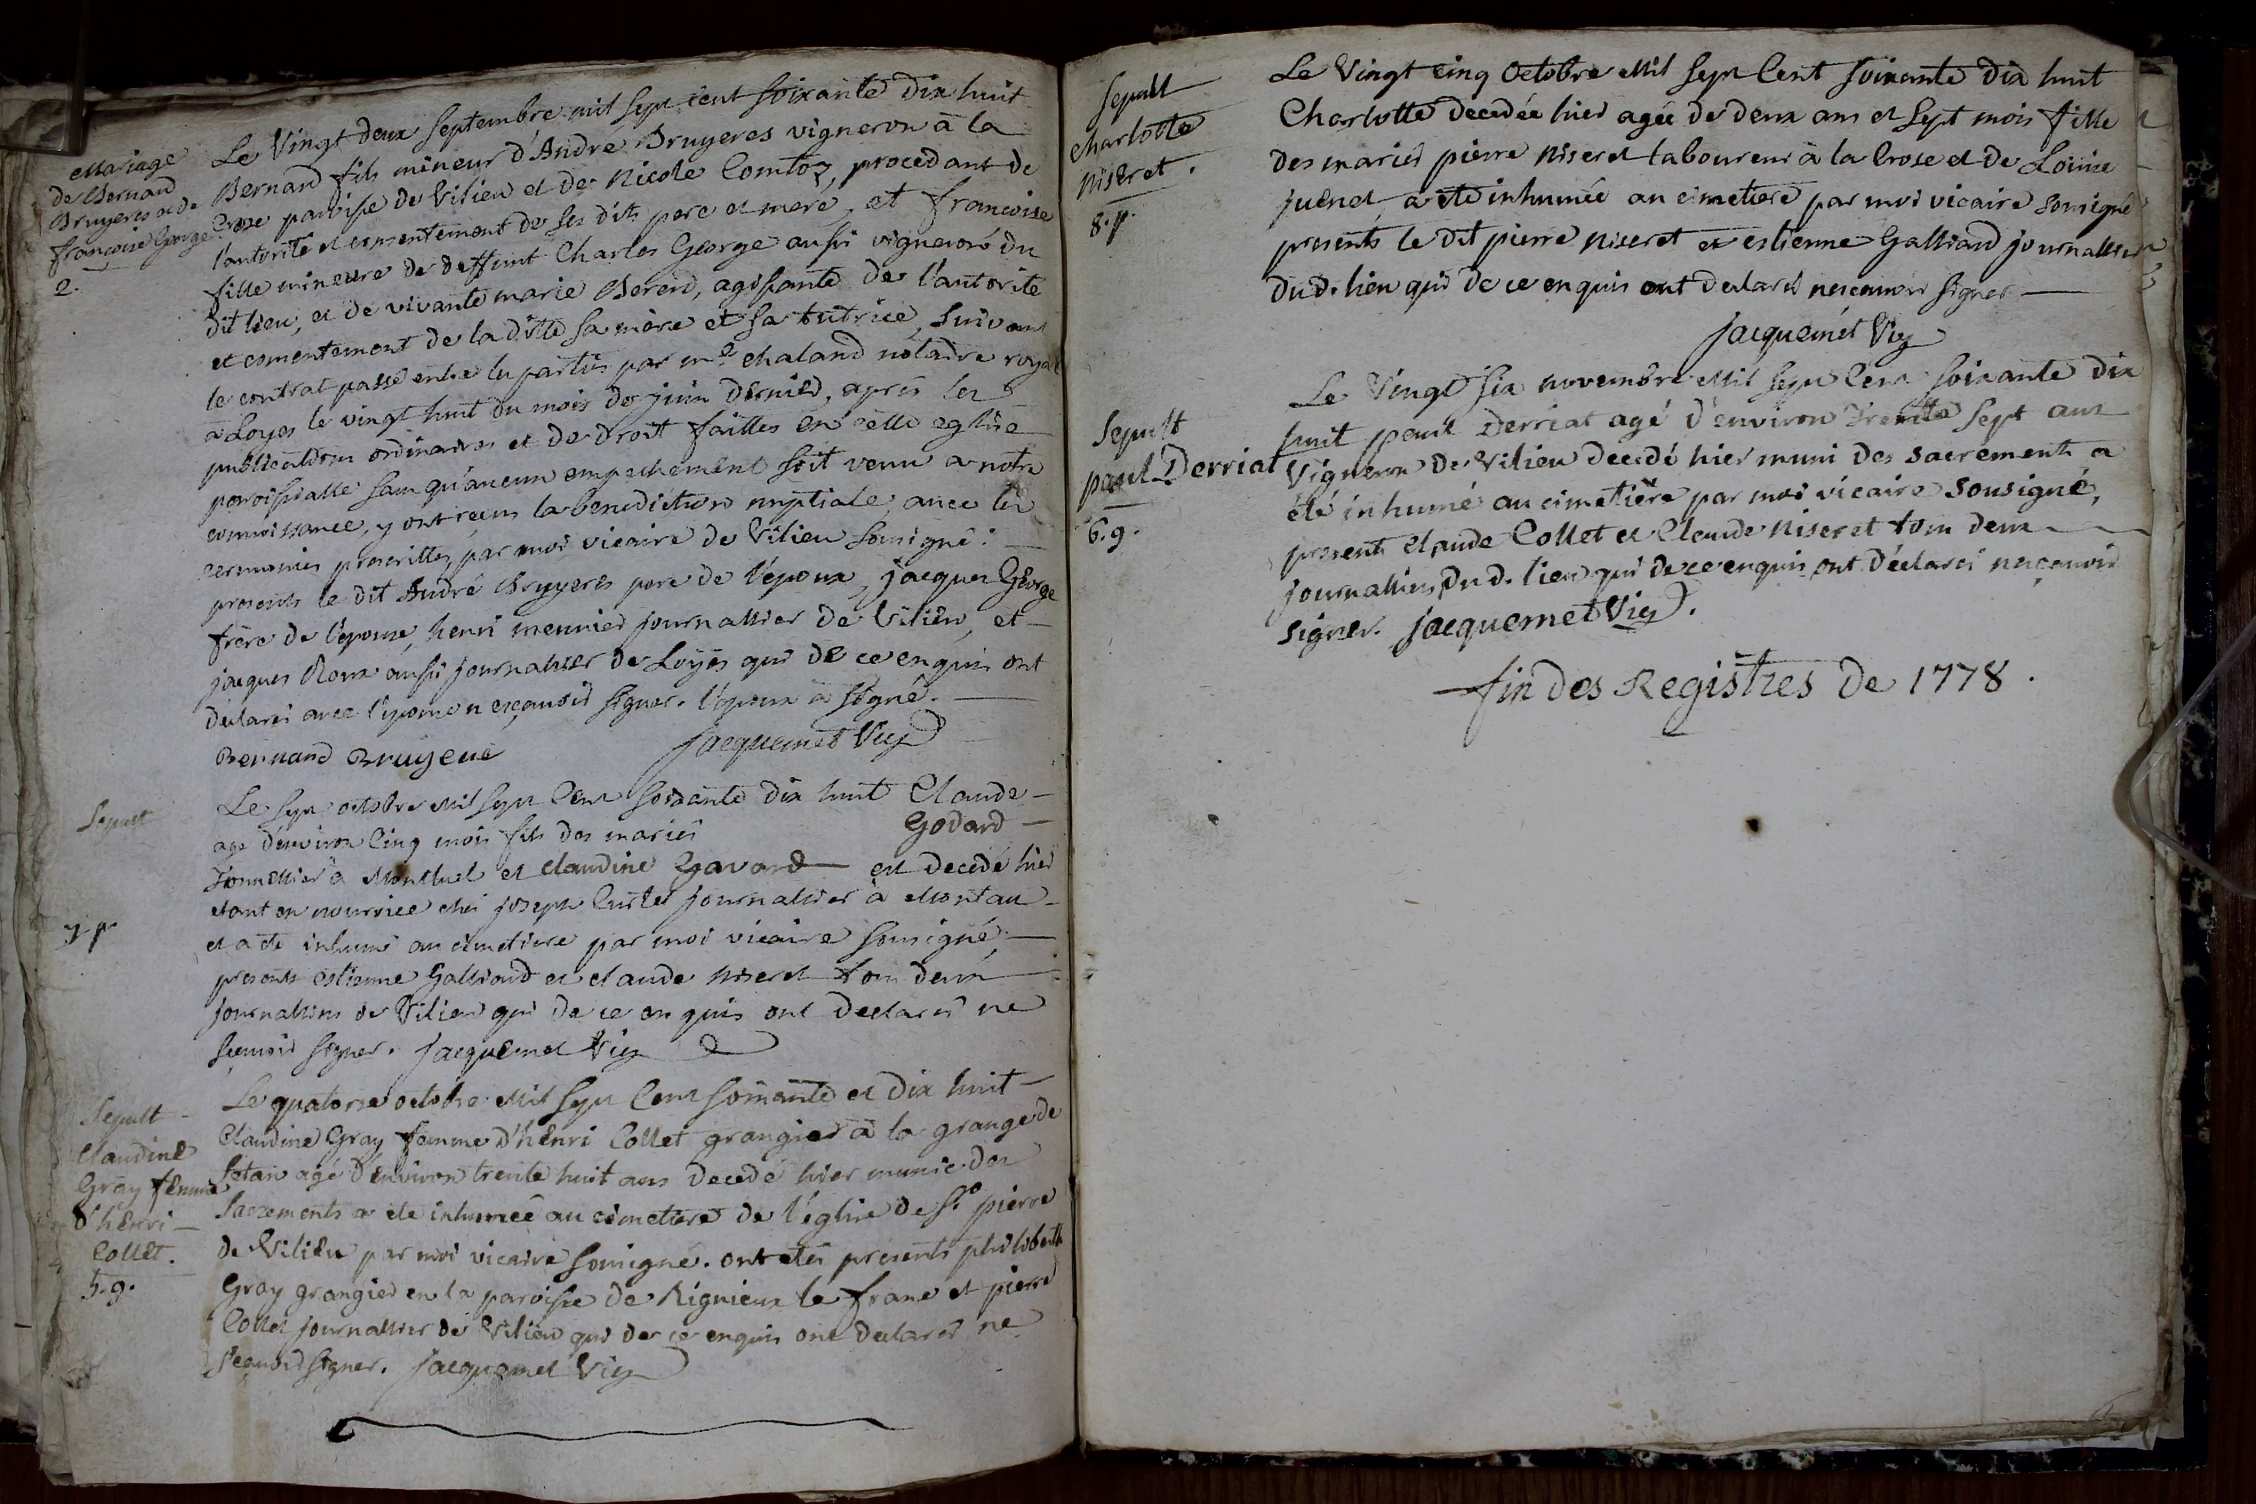 Mariage
de Bernard
Bruyeres et de
francoise George
2.
Le Vingt deux septembre mil sept cent soixante dix huit
Bernard fils mineur d'André Bruyeres vigneron à la
Croze paroisse de Vilieu et de Nicole Comtoz, procedant de
l'autorité et consentement de ses dits pere et mere, et francoise
fille mineure de deffunt Charles George aussi vigneron du
dit lieu, et de vivante marie Bererd, agissante de l'autorité
et consentement de la ditte sa mère et sa tutrice, suivant
le contrat passé entre les parties par me chaland notaire royal
à Loyes le vingt huit du mois de juin dernier, après les
publications ordinaires et de droit faittes en cette eglise
paroissialle sans qu'aucun empechement soit venu a notre
connoissance, y ont reçus la benediction nuptiale, avec les
ceremonies prescrittes, par moi vicaire de Vilieu sousigné :
presents le dit André Bruyeres pere de l'époux, jacques George
frère de l'epouse, henri meunier journallier de Vilieu, et
jacques Roux aussi journallier de Loyes qui de ce enquis ont
declarés avec l'epouse ne sçavoir signer. l'époux a signé.
Bernard Bruyeue Jacquemet Vic
Sepult
7 p
Le sept octobre Mil sept Cent soixante dix huit Claude
agé d'environ Cinq mois fils des mariés Godard
Tonnellier à Montluel et claudine Gavard est decedé hier
etant en nourrice chés joseph Curtet journallier à Montau
et a été inhumé au cimetiere par moi vicaire sousigné,
presents estienne Galliard et claude Niseret tous deux
journalliers de Vilieu qui de ce enquis ont declarés ne
sçavoir signer. Jacquemet Vic
Sepult
Claudine
Gray femme
d'hEnri
Collet.
5. g.
Le quatorze octobre Mil sept Cent soixante et dix huit
Claudine Gray femme d'hEnri Collet grangier à la grange de
agé d'environ trente huit ans decedé hier munie des
Sacrements a été inhumée au cimetiere de l'église de St pierre
de Vilieu par moi vicaire sousigné. ont étés presents philibert
Gray grangier en la paroisse de Rignieux le franc et pierre
Collet journallier de Vilieu qui de ce enquis ont declarés ne
sçavoir signer. Jacquemet Vic
Sepult
Charlotte
Niseret.
8. p.
Le Vingt cinq Octobre Mil sept Cent soixante dix huit
Charlotte decedée hier agée de deux ans et sept mois fille
des mariés pierre Niseret laboureur à la Crose et de Louise
juenet a été inhumée au cimetiere par moi vicaire sousigné
presents le dit pierre Niseret et estienne Galliard journallier
dud. lieu qui de ce enquis ont declarés ne sçavoir signer
Jacquemet Vic
Sepult
paul Derriat
6. g.
Le Vingt six novembre Mil sept Cent soixante dix
huit paul Derriat agé d'environ Trente sept ans
Vigneron de Vilieu decedé hier muni des sacrements a
été inhumé au cimetière par moi vicaire sousigné,
presents claude Collet et Claude Niseret tous deux
journalliers du d. lieu qui de ce enquis ont déclarés ne sçavoir
signer. Jacquemet Vic.
fin des Registres de 1778.